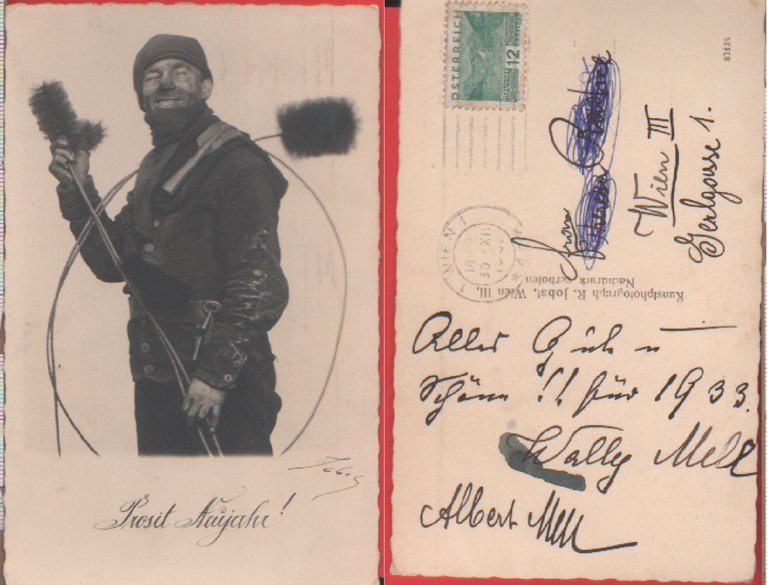 Jobst
Prosit Neujahr!
ÖSTERREICH
12
WIEN 1
XII
Frau
Wien III
Geologasse 1.
83424
Kunstphotograph R. Jobst, Wien III,
Nachdruck verboten
Alles Gute u
Schöne !! für 1933.
Wally Mell
Albert Mell